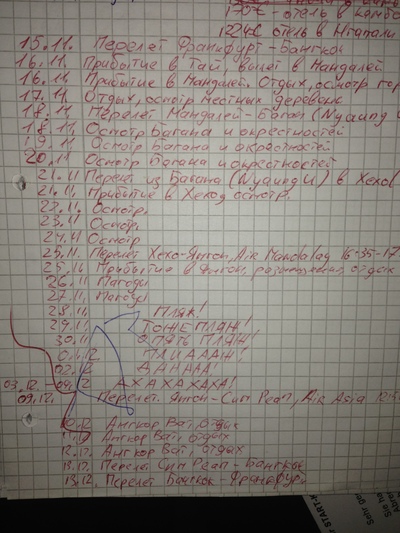 170€ - отель в Камбо
1224€ отель в Нгапали
15.11. Перелет Франкфурт - Бангкок
16.11. Прибытие в Тай, вылет в Мандалей
16.11. Прибытие в Мандалей. Отдых, осмотр гор
17.11. Отдых, осмотр местных деревень
18.11. Перелет Мандалей - Баган (Nyaung U
18.11. Осмотр Багана и окрестностей
19.11. Осмотр Багана и окрестностей
20.11 Осмотр Багана и окрестностей
21.11 Перелет из Багана (Nyaung U) в Хехо(
21.11. Прибытие в Хехо, осмотр.
22.11. Осмотр.
23.11 Осмотр.
24.11 Осмотр
25.11. Перелет Хехо-Янгон, Air Mandalay 16-35-17
25.11. Прибытие в Янгон, размещение, отдых
26.11 Пагоды
27.11. Пагоды
28.11. ПЛЯЖ!
29.11. ТОЖЕ ПЛЯЖ!
30.11 ОПЯТЬ ПЛЯЖ!
01.12 ПЛИАААЖ!
02.12
03.12 - 08.12 АХАХАХАХА!
09.12. Перелет Янгон-Сип Реап, Air Asia
10.12 Ангкор Ват, отдых
11.12 Ангкор Ват, отдых
12.12. Ангкор Ват, отдых
13.12. Перелет Сип Реап - Бангкок
13.12. Перелет Бангкок - Франкфурт
START-